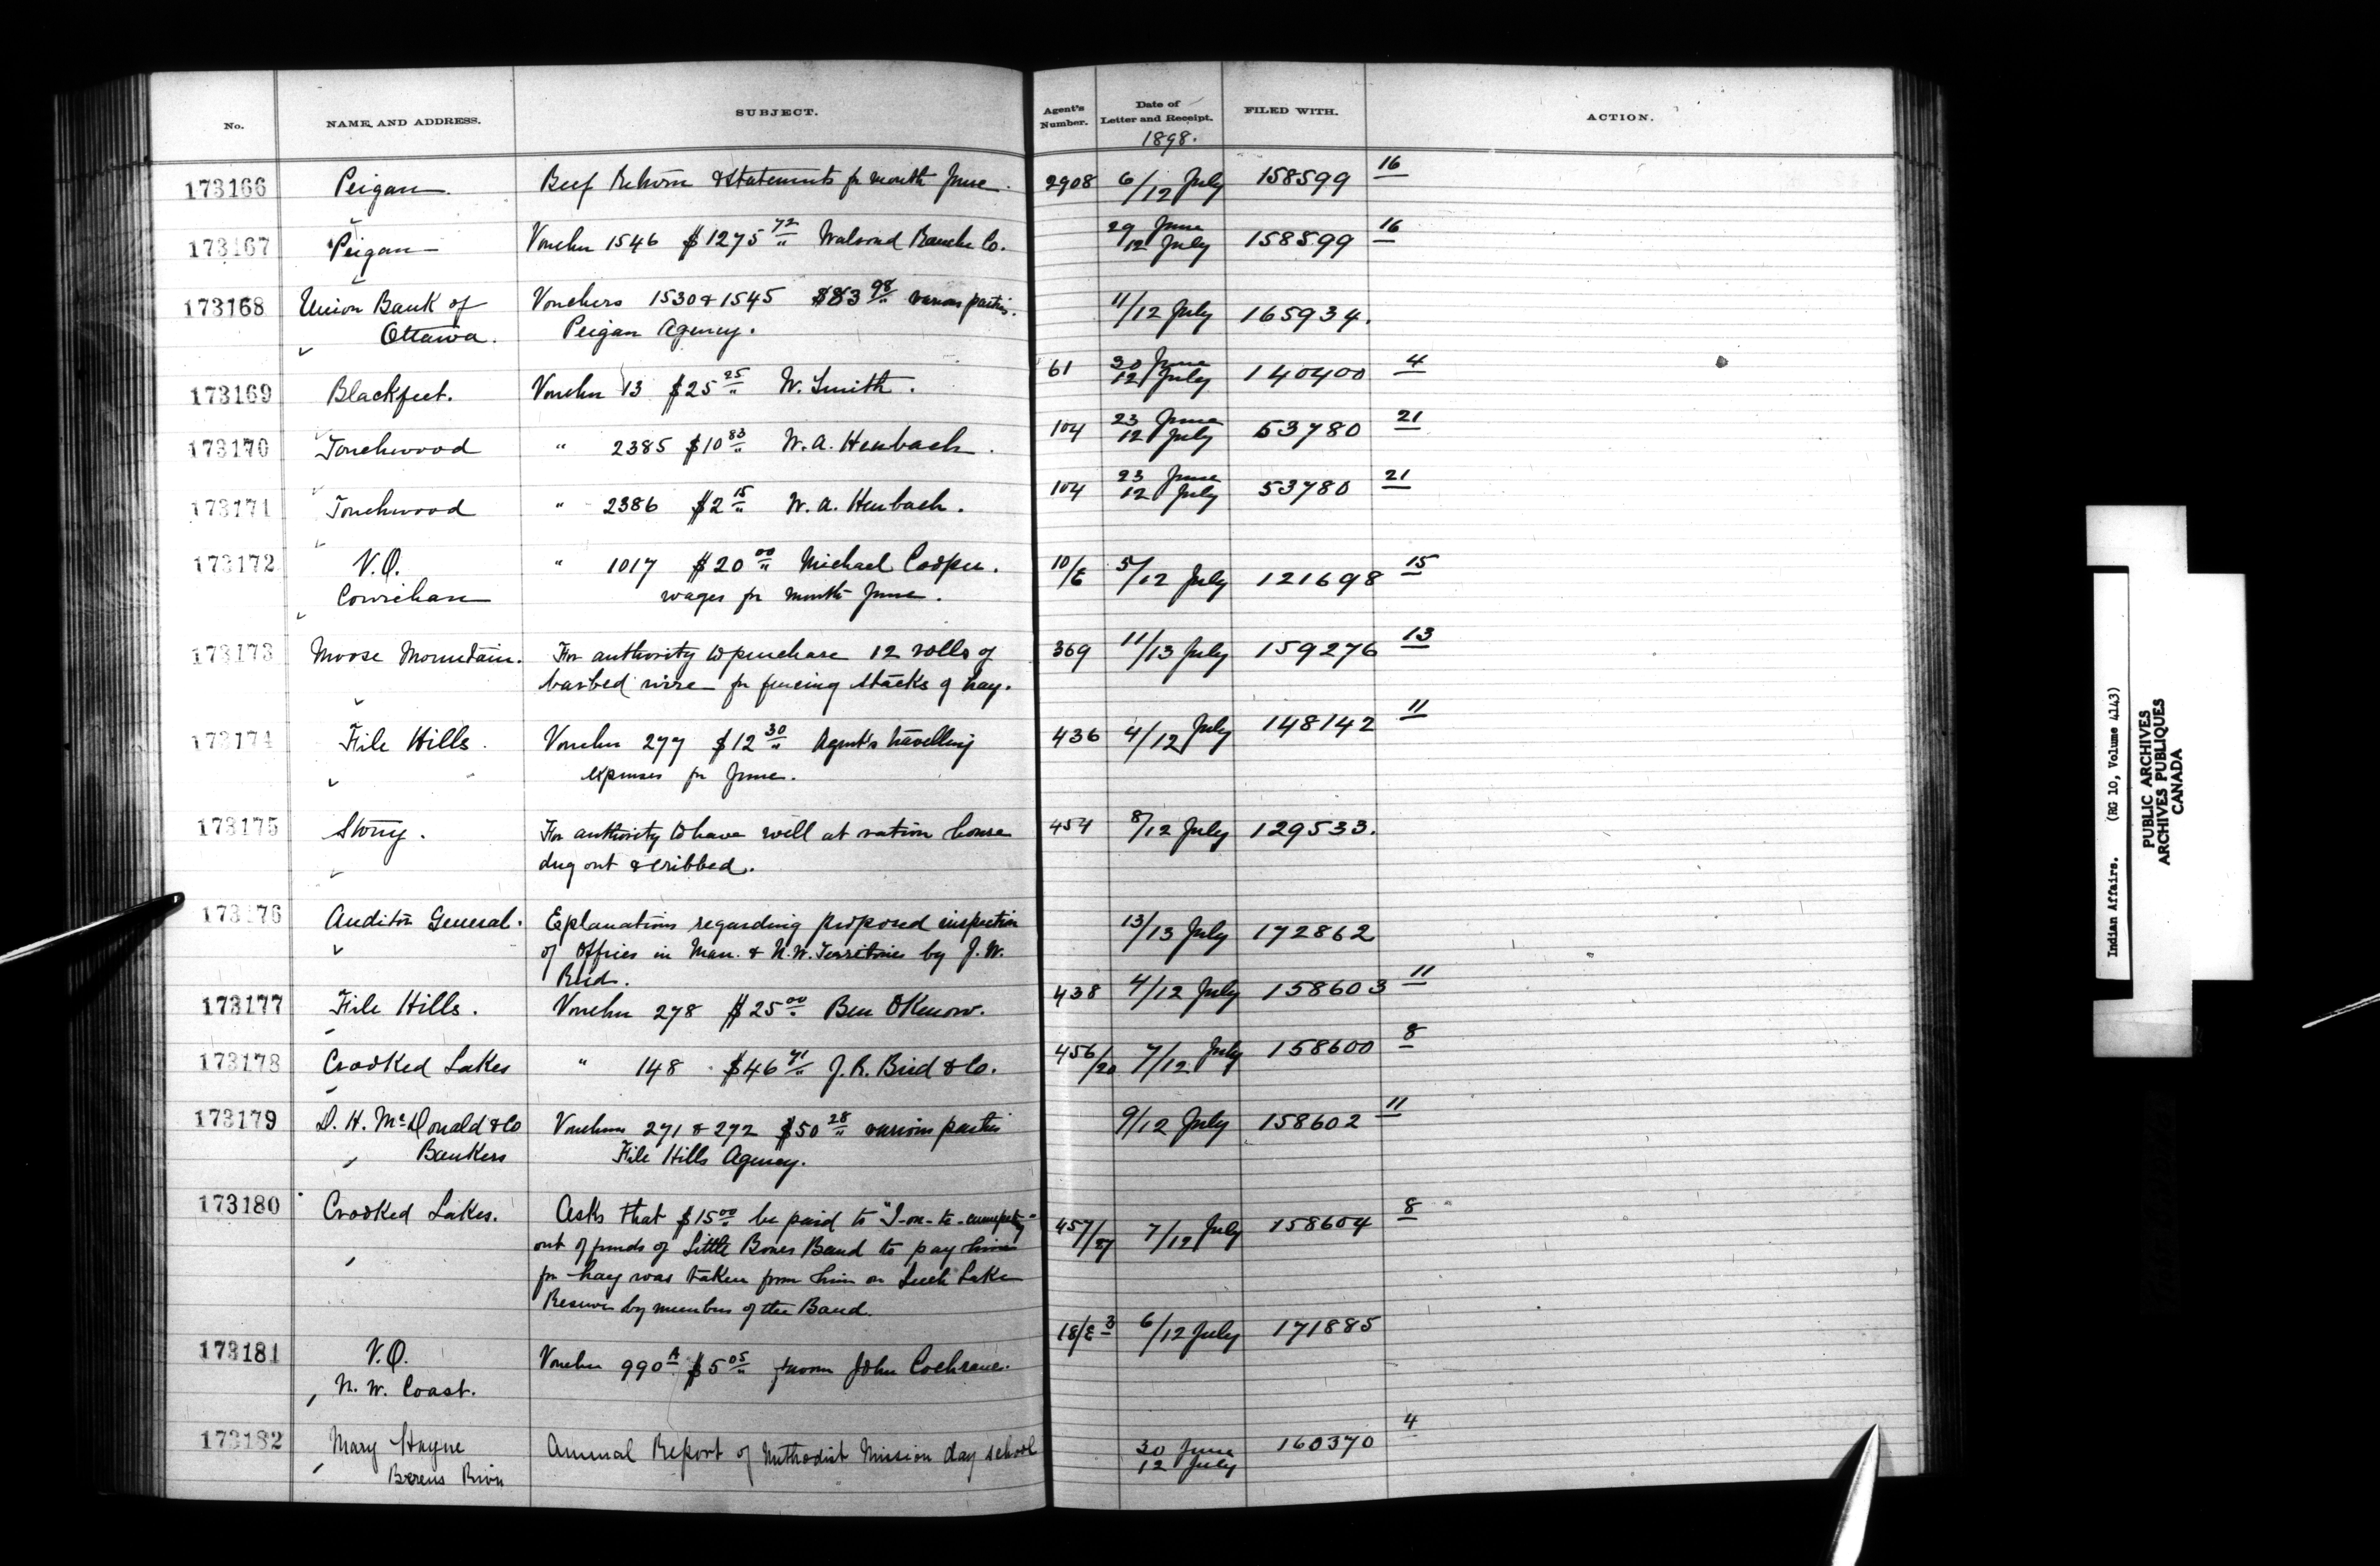 No. NAME AND ADDRESS. SUBJECT. Agent's Number. Date of Letter and Receipt. FILED WITH. ACTION.
1898.
173166 Peigan. Beef Return & Statements for month June. 2908 6/12 July 158599 16
173167 Peigan Voucher 1546 $1275 72 Walrond Ranche Co. 29 June 12 July 158599 16
173168 Union Bank of Vouchers 1530 & 1545 $83 98 various parties. 11/12 July 165934.
Ottawa. Peigan Agency.
173169 Blackfeet. Voucher 13 $25 25 W. Smith. 61 30 June 12 July 140400 4
173170 Touchwood " 2385 $10 83 W. A. Heubach. 104 23 June 12 July 53780 21
173171 Touchwood " 2386 $2 15 W. A. Heubach. 104 23 June 12 July 53780 21
173172 V.O. " 1017 $20 00 Michael Cooper. 10/E 5/12 July 121698 15
Cowichan wages for month June.
173173 Moose Mountain. For authority to purchase 12 rolls of 369 11/13 July 159276 13
barbed wire for fencing stacks of hay.
173174 File Hills. Voucher 277 $12 30 Agent's travelling 436 4/12 July 148142 11
expenses for June.
173175 Stony. For authority to have well at ration house 454 8/12 July 129533.
dug out & cribbed.
173176 Auditor General. Explanations regarding proposed inspection 13/13 July 172862
of Offices in Man. & N.W. Territories by J. W.
Reid.
173177 File Hills. Voucher 278 $25 00 Ben OKenow. 438 4/12 July 158603 11
173178 Crooked Lakes " 148 $46 71 J. R. Bird & Co. 456/20 7/12 July 158600 8
173179 D. H. McDonald & Co Vouchers 271 & 272 $50 28 various parties 9/12 July 158602 11
Bankers File Hills Agency.
173180 Crooked Lakes. Asks that $15 00 be paid to 457/27 7/12 July 158604 8
out of funds of Little Bones Band to pay him
for hay was taken from him on Leech Lake
Reserve by members of the Band.
173181 V.O. Voucher 990 A $5 05 favour John Cochrane. 18/E 3 6/12 July 171885
N. W. Coast.
173182 Mary Hayne Annual Report of Methodist Mission day school 30 June 12 July 160370 4
Berens River
Indian Affairs. (RG 10, Volume 4143)
PUBLIC ARCHIVES
ARCHIVES PUBLIQUES
CANADA